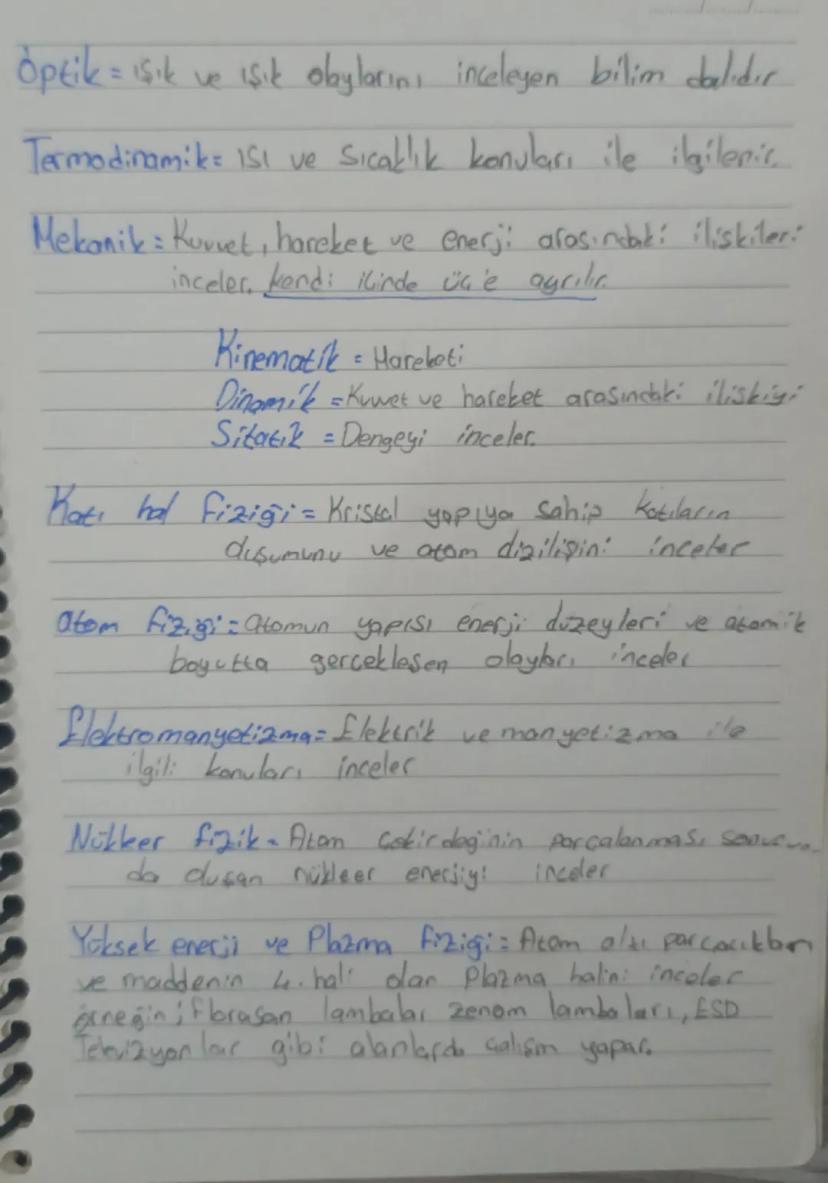 Optik = ışık ve ışık olaylarını inceleyen bilim dalıdır
Termodinamik = ISI ve Sıcaklık konuları ile ilgilenir.
Mekanik = Kuvvet, hareket ve enerji arasındaki iliskileri
inceler. kendi içinde üç'e ayrılır.
Kinematik = Hareketi
Dinamik = Kuvvet ve hareket arasındaki iliskiyi
Sitatik = Dengeyi inceler.
Katı hal fiziği = Kristal yapıya sahip katıların
ve atom dizilişini inceler
atom fiziği = atomun yapısı enerji düzeyleri ve atomik
boyutta gerceklesen olayları inceler
Elektromanyetizma = Elektrik ve manyetizma ile
ilgili konuları inceler
Nükleer fizik = Atom cekirdeginin parcalanması
da olusan nükleer enerjiyi inceler
Yüksek enerji ve Plazma fiziği = Atom altı parcacıkları
ve maddenin 4. hali olan Plazma halini inceler
örneğin; florasan lambalar zenom lambaları, ESD
Televizyonlar gibi alanlarda calısm yapar.